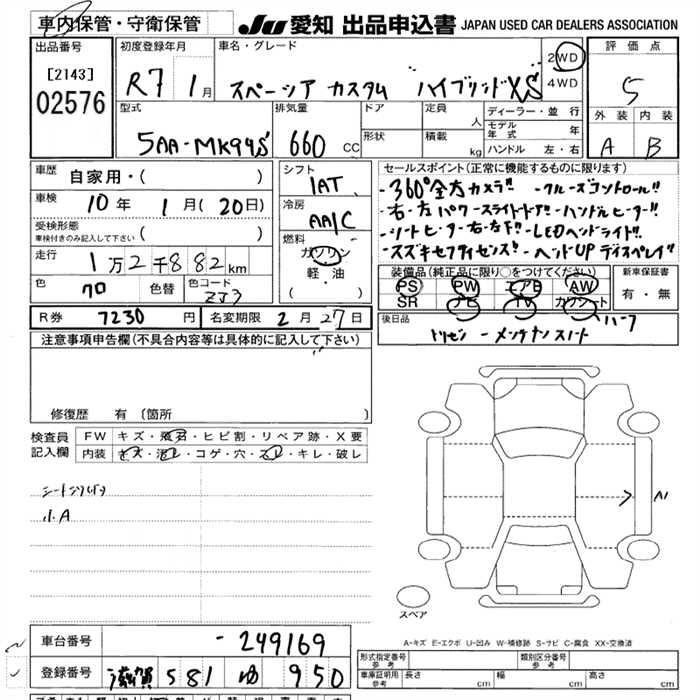 車内保管・守衛保管
JU 愛知 出品申込書 JAPAN USED CAR DEALERS ASSOCIATION
出品番号
[2143]
02576
初度登録年月
R7 1月
車名・グレード
スペーシア カスタム ハイブリッドXS
2WD
4WD
評価点
S
外装 内装
A B
型式
5AA-MK94S
排気量
660 CC
ドア
形状
定員
人
積載
kg
ディーラー・並行
モデル年式 年
ハンドル 左・右
車歴
自家用・( )
車検
10年 1月(20日)
受検形態
車検付きのみ記入して下さい ( )
走行
1万2千882km
色
クロ
色替
色コード
ZJ3
シフト
IAT
冷房
AA/C
燃料
ガソリン
軽・油
( ・ )
セールスポイント(正常に機能するものに限ります)
・360°全方位カメラ!! ・クルーズコントロール!!
・右・左パワースライドドア!! ・ハンドルヒーター!!
・シートヒーター右・左F!! ・LEDヘッドライト!!
・スズキセーフティサポート!! ・ヘッドUPディスプレイ!!
装備品(純正品に限り○をつけてください)
PS PW エアB AW
SR ナビ TV カワシート
ハーフ
新車保証書
有・無
後日品
トリセツ ーメンテナンスノート
R券 7230円
名変期限 2月27日
注意事項申告欄(不具合内容等は具体的に記入して下さい)
修復歴 有(箇所 )
検査員記入欄
FW キズ・飛石・ヒビ割・リペア跡・X要
内装 キズ・汚レ・コゲ・穴・スレ・キレ・破レ
小A
スペア
A-キズ E-エクボ U-凹み W-補修跡 S-サビ C-腐食 XX-交換済
車台番号 -249169
登録番号 滋賀 581 ゆ 950
形式指定番号 参考
類別区分番号 参考
車庫証明用 参考
長さ cm
幅 cm
高さ cm